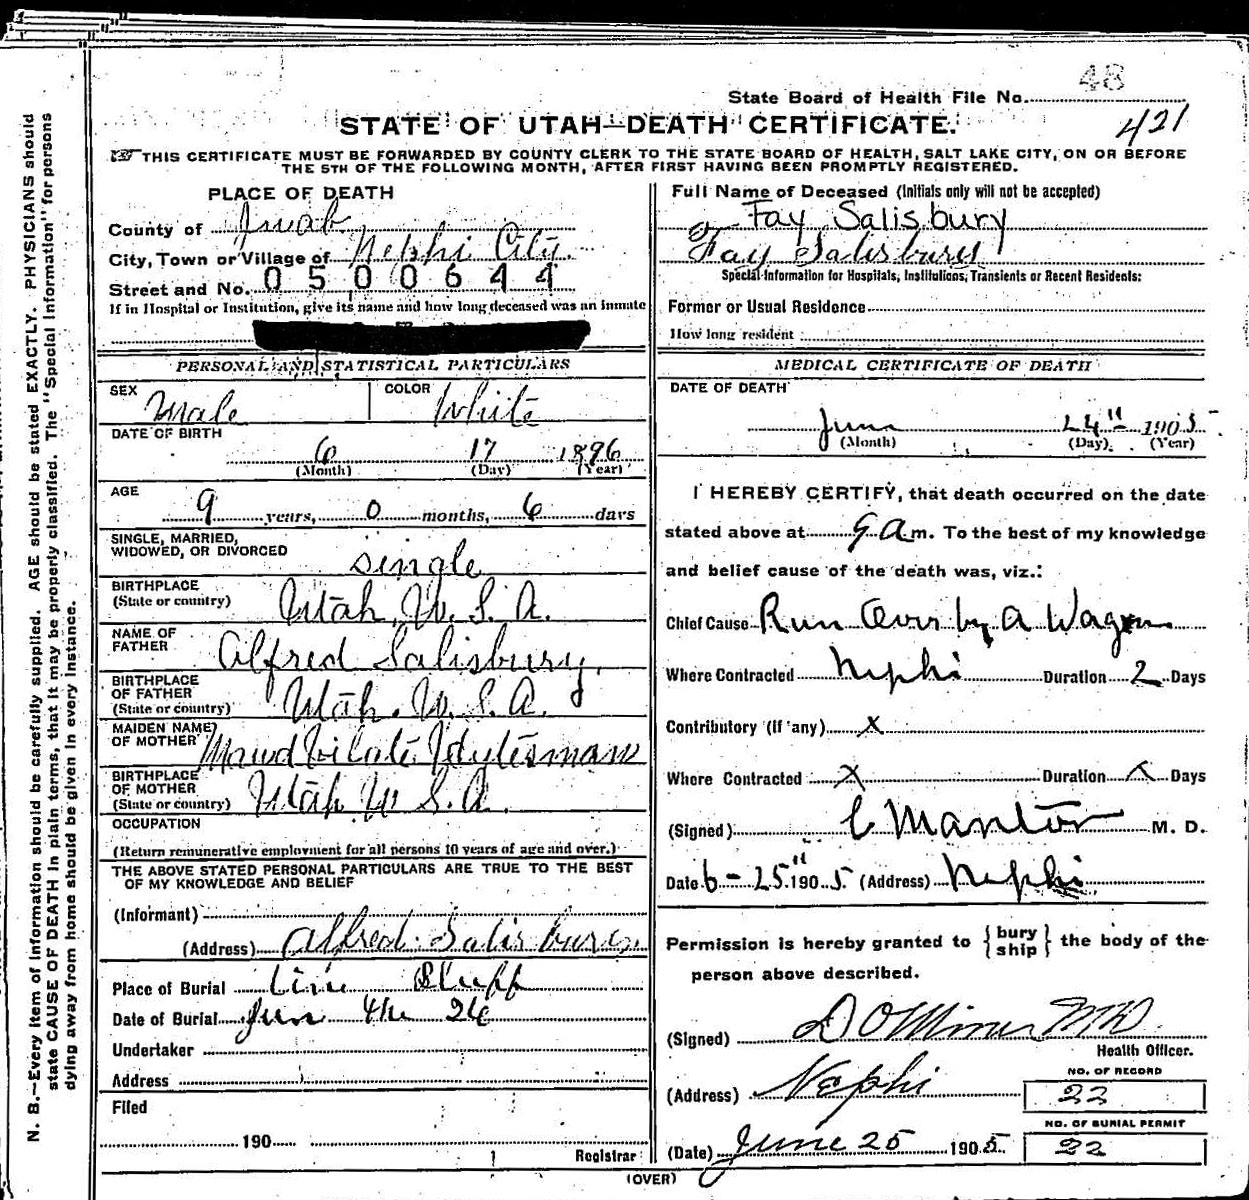 48
State Board of Health File No.
421
STATE OF UTAH—DEATH CERTIFICATE.
THIS CERTIFICATE MUST BE FORWARDED BY COUNTY CLERK TO THE STATE BOARD OF HEALTH, SALT LAKE CITY, ON OR BEFORE
THE 5TH OF THE FOLLOWING MONTH, AFTER FIRST HAVING BEEN PROMPTLY REGISTERED.
PLACE OF DEATH
County of Juab
City, Town or Village of Nephi City.
Street and No. 0500644
If in Hospital or Institution, give its name and how long deceased was an inmate
PERSONAL AND STATISTICAL PARTICULARS
SEX Male COLOR White
DATE OF BIRTH
6 17 1896
(Month) (Day) (Year)
AGE
9 years, 0 months, 6 days
SINGLE, MARRIED,
WIDOWED, OR DIVORCED single
BIRTHPLACE
(State or country) Utah, U. S. A.
NAME OF
FATHER Alfred Salisbury
BIRTHPLACE
OF FATHER
(State or country) Utah. U. S. A.
MAIDEN NAME
OF MOTHER Maud Vilate
BIRTHPLACE
OF MOTHER
(State or country) Utah U S. A.
OCCUPATION
(Return remunerative employment for all persons 10 years of age and over.)
THE ABOVE STATED PERSONAL PARTICULARS ARE TRUE TO THE BEST
OF MY KNOWLEDGE AND BELIEF
(Informant)
(Address) Alfred Salisbury
Place of Burial Bluff
Date of Burial Jun 26
Undertaker
Address
Filed
190
Registrar
Full Name of Deceased (Initials only will not be accepted)
Fay Salisbury
Fay Salisbury
Special Information for Hospitals, Institutions, Transients or Recent Residents:
Former or Usual Residence
How long resident
MEDICAL CERTIFICATE OF DEATH
DATE OF DEATH
June 24" 1905
(Month) (Day) (Year)
I HEREBY CERTIFY, that death occurred on the date
stated above at 9 A. m. To the best of my knowledge
and belief cause of the death was, viz.:
Chief Cause Run Over by a Wagon
Where Contracted Nephi Duration 2 Days
Contributory (if any) x
Where Contracted x Duration x Days
(Signed) M. D.
Date 6-25" 1905. (Address) Nephi
Permission is hereby granted to {bury
ship} the body of the
person above described.
(Signed) D O Miner MD
Health Officer.
(Address) Nephi
NO. OF RECORD
22
NO. OF BURIAL PERMIT
(Date) June 25 1905. 22
(OVER)
N. B.—Every item of information should be carefully supplied. AGE should be stated EXACTLY. PHYSICIANS should
state CAUSE OF DEATH in plain terms, that it may be properly classified. The "Special Information" for persons
dying away from home should be given in every instance.